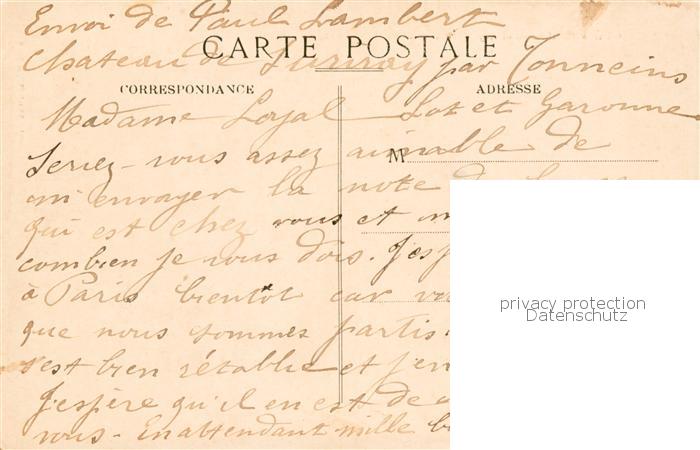 Envoi de Paul Lambert
CARTE POSTALE
Chateau de par Tonneins
CORRESPONDANCE ADRESSE
Madame Loyal Lot et Garonne
Seriez-vous assez aimable de
M
m envoyer la note
qui est chez vous et
combien je vous dois.
à Paris bientot car
que nous sommes partis
s'est bien rétablie et
J'espère qu'il en est de
vous - En attendant mille
privacy protection
Datenschutz